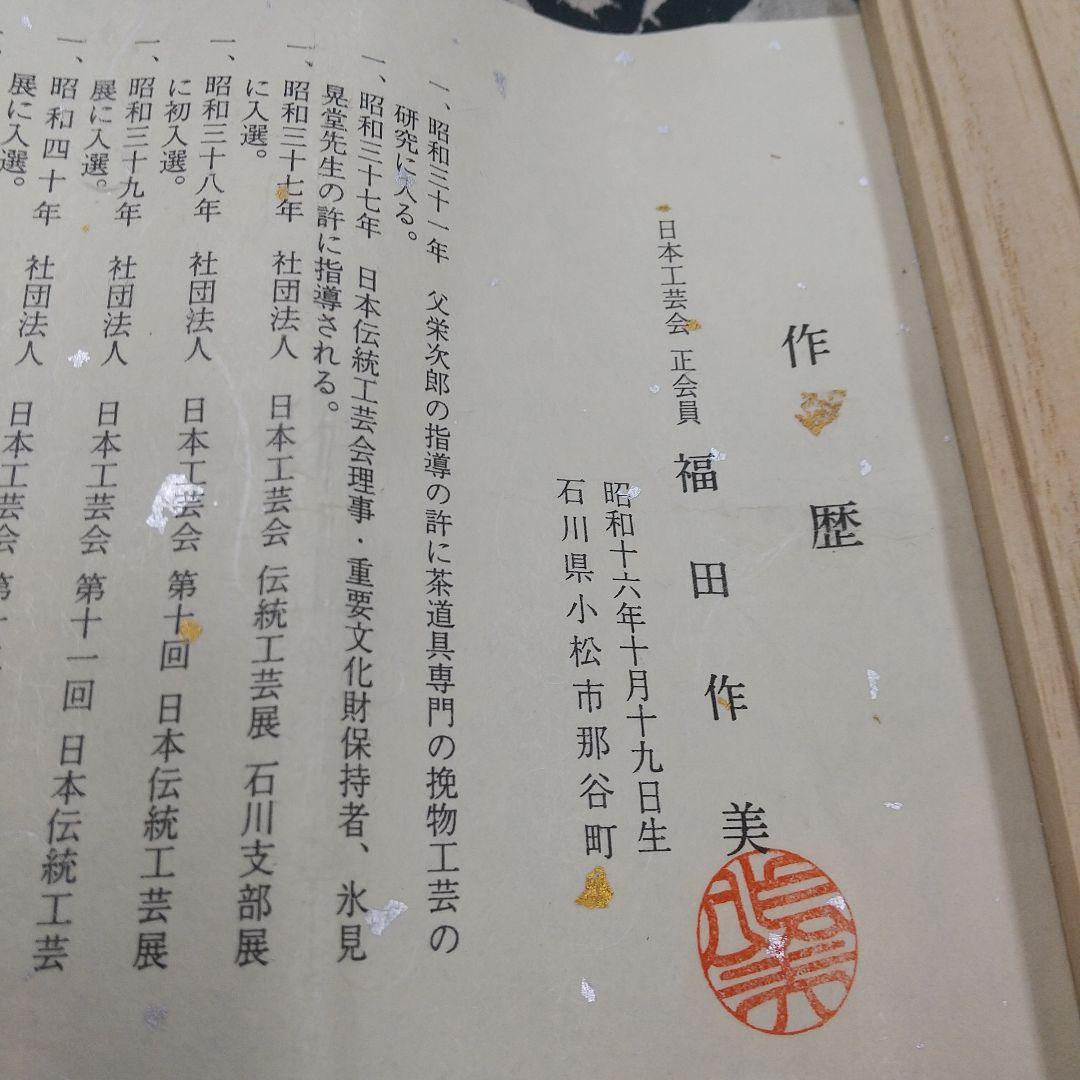 作歴
日本工芸会 正会員 福田作美
昭和十六年十月十九日生
石川県小松市那谷町
一、昭和三十一年 父栄次郎の指導の許に茶道具専門の挽物工芸の
研究に入る。
一、昭和三十七年 日本伝統工芸会理事・重要文化財保持者、氷見
晃堂先生の許に指導される。
一、昭和三十七年 社団法人 日本工芸会 伝統工芸展 石川支部展
に入選。
一、昭和三十八年 社団法人 日本工芸会 第十回 日本伝統工芸展
に初入選。
一、昭和三十九年 社団法人 日本工芸会 第十一回 日本伝統工芸
展に入選。
一、昭和四十年 社団法人 日本工芸会 第十
展に入選。